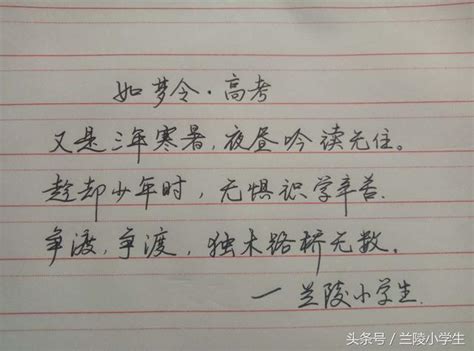 如梦令·高考
又是三年寒暑,夜昼吟读无住。
趁却少年时,无惧识学辛苦.
争渡,争渡,独木路桥无数。
一兰陵小学生.
头条号/兰陵小学生